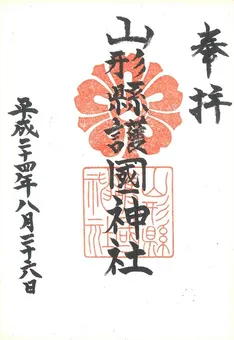 奉拝
山形縣護國神社
平成二十四年八月二十六日
山形縣
神社